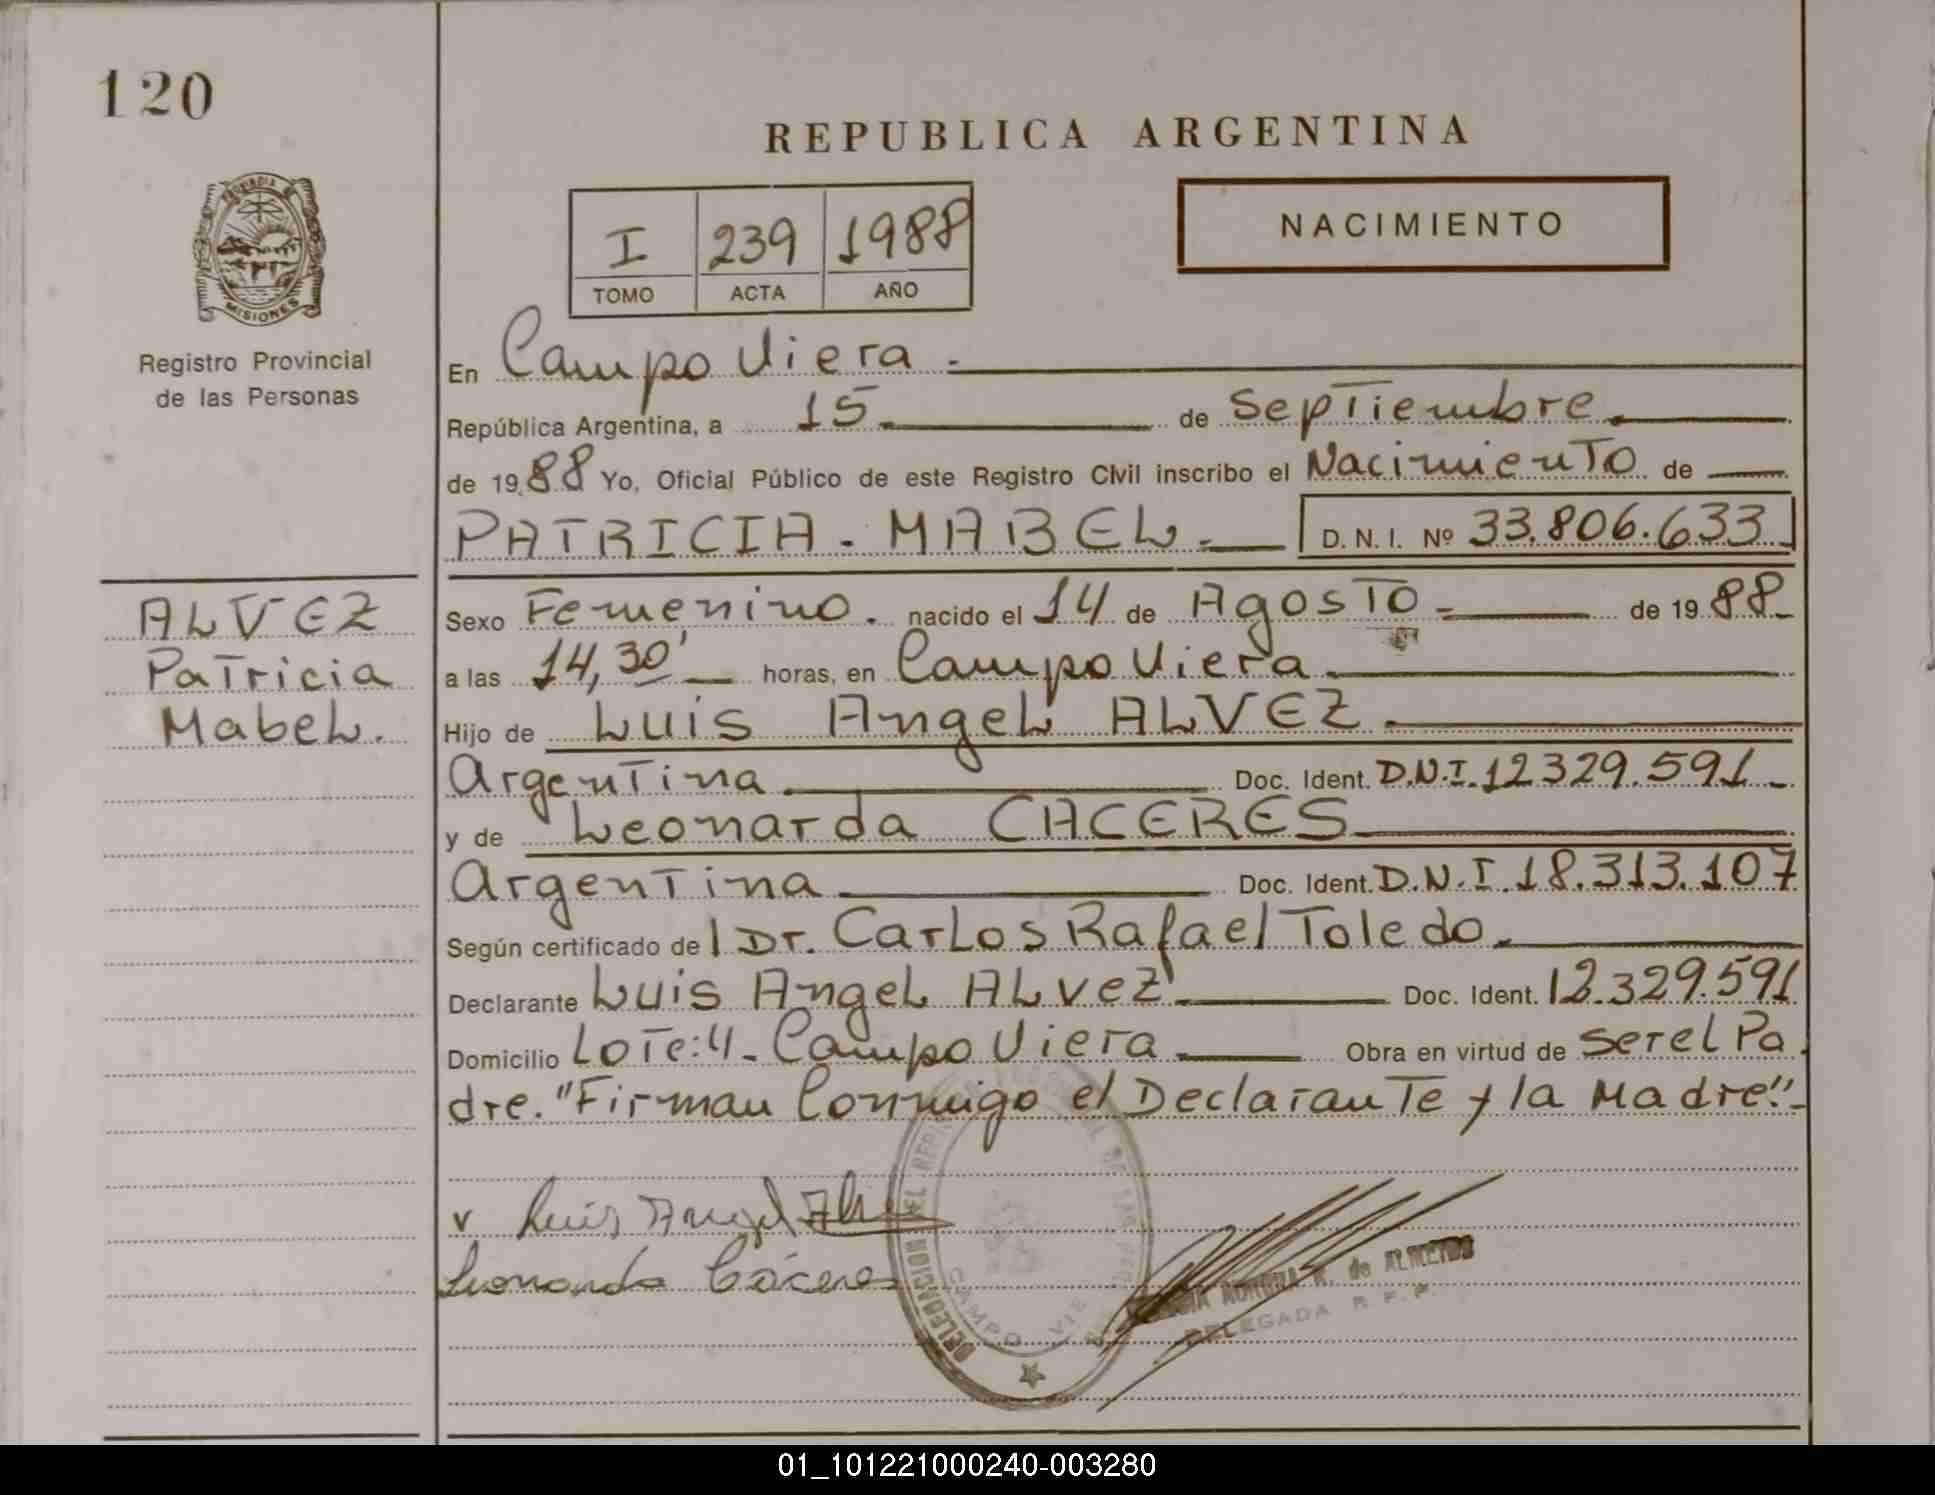 120
REPUBLICA ARGENTINA
PROVINCIA DE
MISIONES
Registro Provincial
de las Personas
I 239 1988
TOMO ACTA AÑO
NACIMIENTO
En Campo Viera.
República Argentina, a 15 de Septiembre.
de 1988 Yo, Oficial Público de este Registro Civil inscribo el Nacimiento de
PATRICIA. MABEL. D. N. I. Nº 33.806.633
ALVEZ
Patricia
Mabel.
Sexo Femenino. nacido el 14 de Agosto de 1988
a las 14,30' horas, en Campo Viera.
Hijo de Luis Angel ALVEZ.
Argentina Doc. Ident. D.N.I. 12329.591
y de Leonarda CACERES
Argentina Doc. Ident. D.N.I. 18.313.107
Según certificado del Dr. Carlos Rafael Toledo.
Declarante Luis Angel ALvez Doc. Ident. 12.329.591
Domicilio Lote:4. Campo Viera Obra en virtud de ser el Pa
dre. "Firman Conmigo el Declarante y la Madre".
v Luis Angel
Leonarda Cáceres
DELEGACION DEL
CAMPO VIE
de ALMEIDO
DELEGADA R. P. P.
01_101221000240-003280